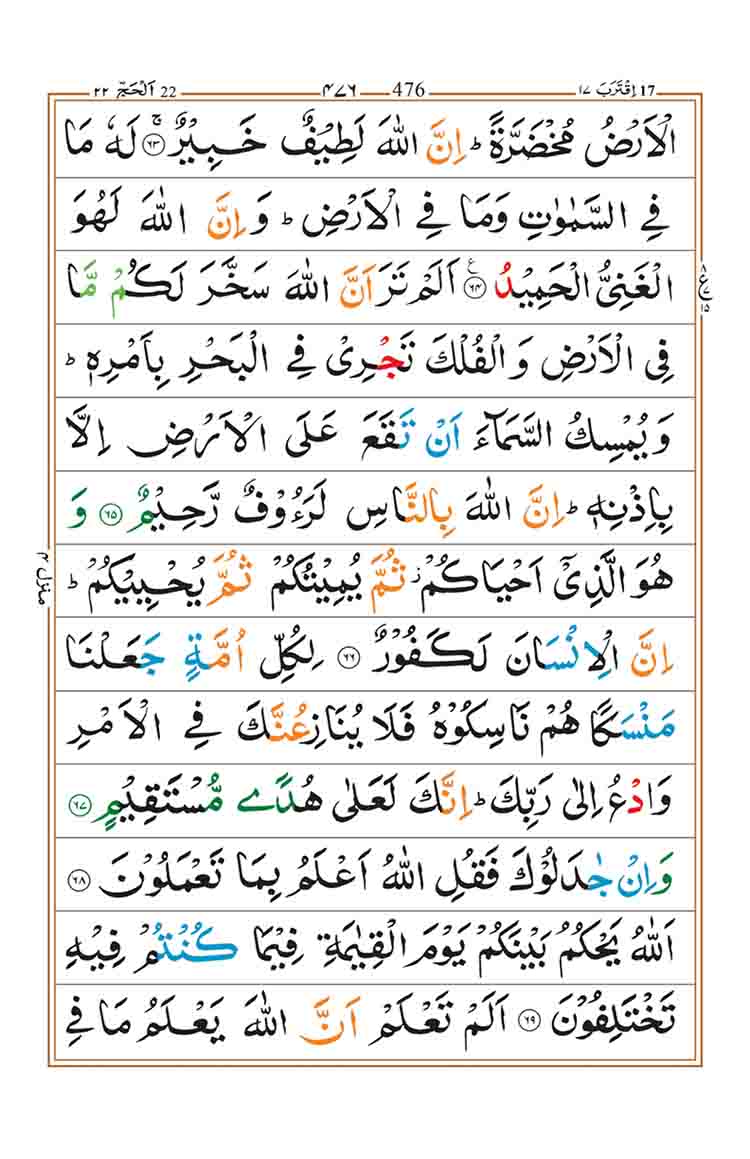 17 اِقْتَرَبَ ١٧ 476 ٤٧٦ 22 اَلْحَجّ ٢٢
الْاَرْضُ مُخْضَرَّةً ؕ اِنَّ اللّٰهَ لَطِيْفٌ خَبِيْرٌ ۚ‏﴿۶۳﴾ لَهٗ مَا
فِي السَّمٰوٰتِ وَمَا فِي الْاَرْضِ ؕ وَاِنَّ اللّٰهَ لَهُوَ
الْغَنِيُّ الْحَمِيْدُ ﴿۶۴﴾ ع اَلَمْ تَرَ اَنَّ اللّٰهَ سَخَّرَ لَكُمْ مَّا
فِي الْاَرْضِ وَالْفُلْكَ تَجْرِيْ فِي الْبَحْرِ بِاَمْرِهٖ ؕ
وَيُمْسِكُ السَّمَآءَ اَنْ تَقَعَ عَلَى الْاَرْضِ اِلَّا
بِاِذْنِهٖ ؕ اِنَّ اللّٰهَ بِالنَّاسِ لَرَءُوْفٌ رَّحِيْمٌ ﴿۶۵﴾ وَ
هُوَ الَّذِيْۤ اَحْيَاكُمْ ز ثُمَّ يُمِيْتُكُمْ ثُمَّ يُحْيِيْكُمْ ؕ
اِنَّ الْاِنْسَانَ لَكَفُوْرٌ ﴿۶۶﴾ لِكُلِّ اُمَّةٍ جَعَلْنَا
مَنْسَكًا هُمْ نَاسِكُوْهُ فَلَا يُنَازِعُنَّكَ فِي الْاَمْرِ
وَادْعُ اِلٰى رَبِّكَ ؕ اِنَّكَ لَعَلٰى هُدًى مُّسْتَقِيْمٍ ﴿۶۷﴾
وَاِنْ جٰدَلُوْكَ فَقُلِ اللّٰهُ اَعْلَمُ بِمَا تَعْمَلُوْنَ ﴿۶۸﴾
اَللّٰهُ يَحْكُمُ بَيْنَكُمْ يَوْمَ الْقِيٰمَةِ فِيْمَا كُنْتُمْ فِيْهِ
تَخْتَلِفُوْنَ ﴿۶۹﴾ اَلَمْ تَعْلَمْ اَنَّ اللّٰهَ يَعْلَمُ مَا فِي
منزل ۴